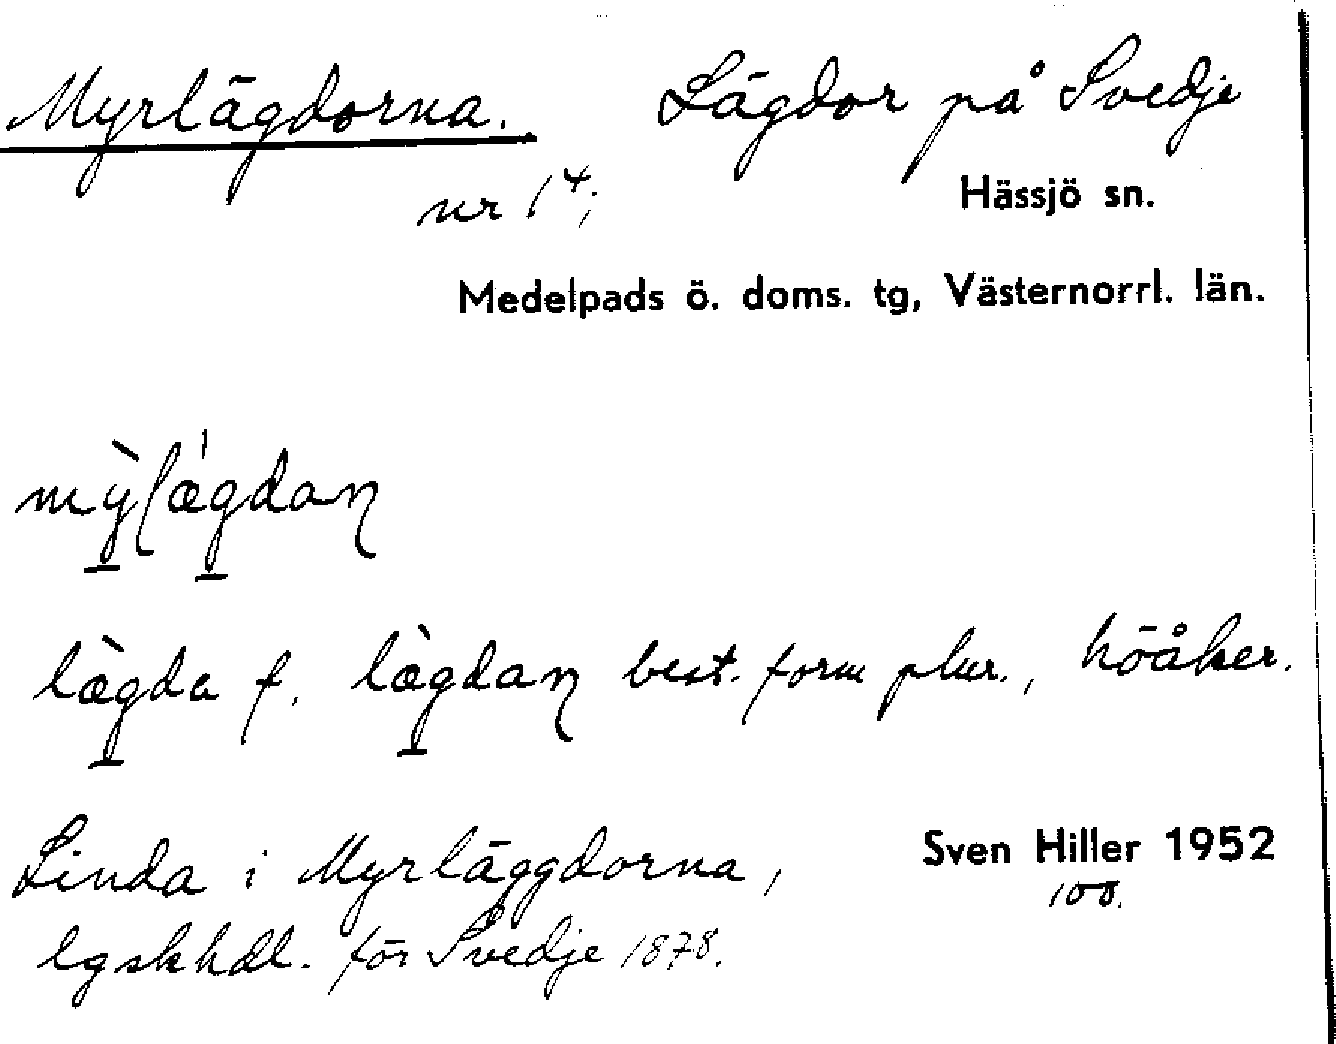 Myrlägdorna. Lägdor på Svedje
nr 14; Hässjö sn.
Medelpads ö. doms. tg, Västernorrl. län.
mỳlǽgdaɳ
læ̀gda f. læ̀gdaɳ best. form plur., höåker.
Linda i Myrläggdorna, Sven Hiller 1952
lgskhdl. för Svedje 1878. 108.